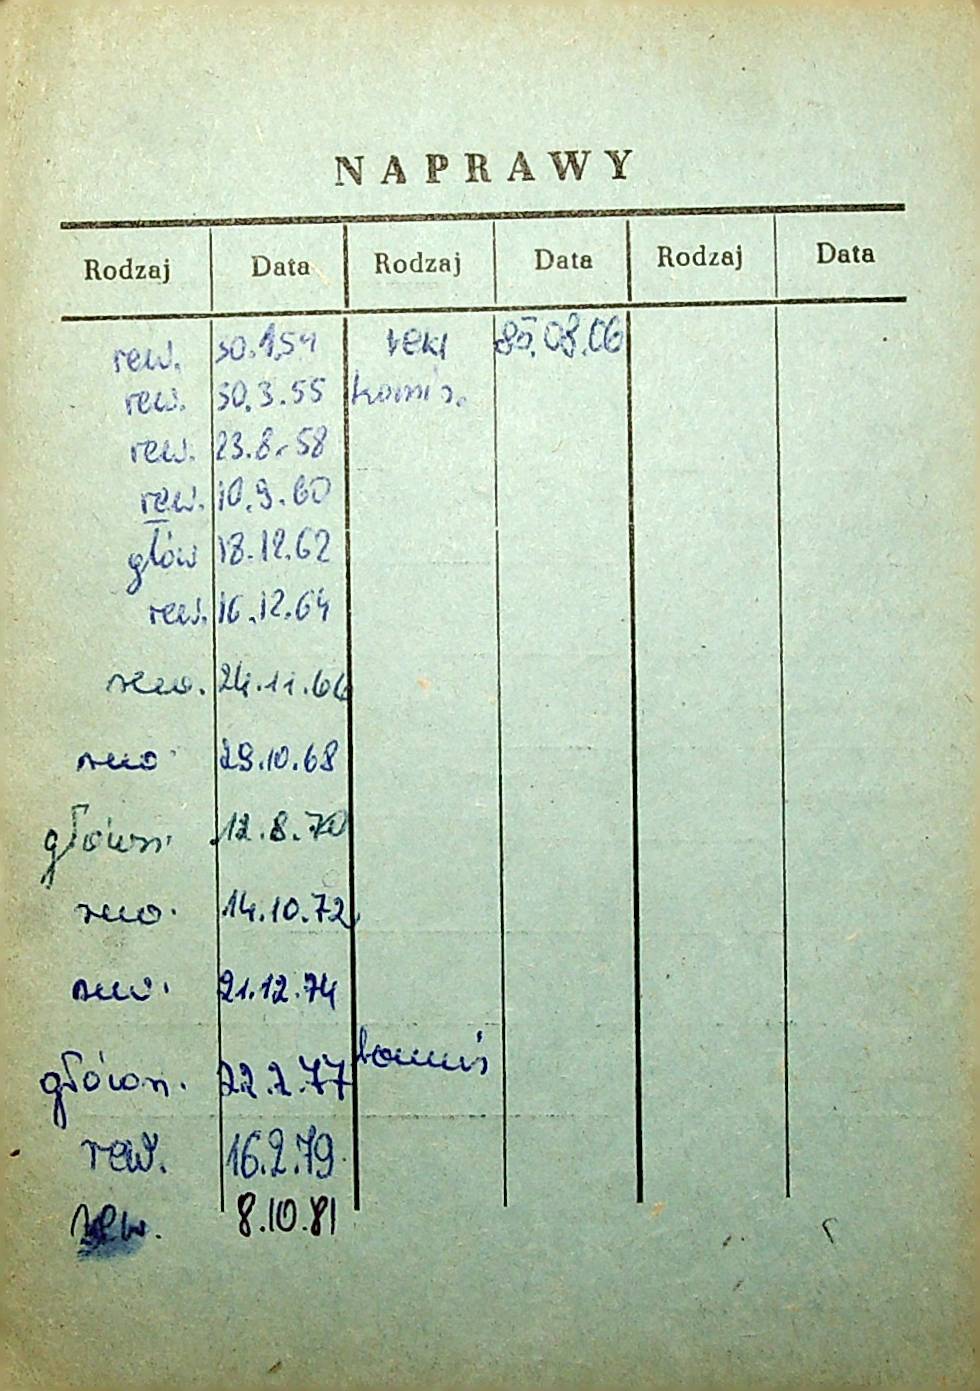 NAPRAWY
Rodzaj Data Rodzaj Data Rodzaj Data
rew. 30.1.54 rekl 85.08.06
rew. 30.3.55 komis.
rew. 23.8.58
rew. 10.9.60
głów 18.12.62
rew. 16.12.64
rew. 24.11.66
rew. 29.10.68
główn. 12.8.70
rew. 14.10.72
rew. 21.12.74
główn. 22.2.77 komis
rew. 16.2.79
rew. 8.10.81